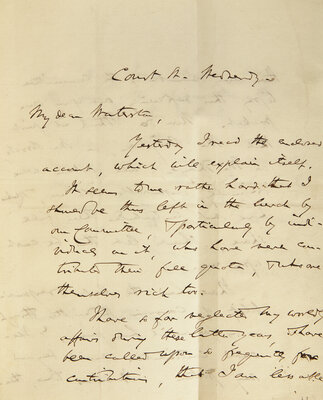 Court St. Wednesdy
My dear Waterston,
Yesterday I recd the enclosed
account, which will explain itself.
It seems to me rather hard that I
should be thus left in the lurch by
our Committee, & particularly by indi-
viduals on it, who have never con-
tributed their full quota, & who are
themselves rich too.
I have so far neglected my worldly
affairs during these latter years, & have
been called upon so frequently for
contributions, that I am less able